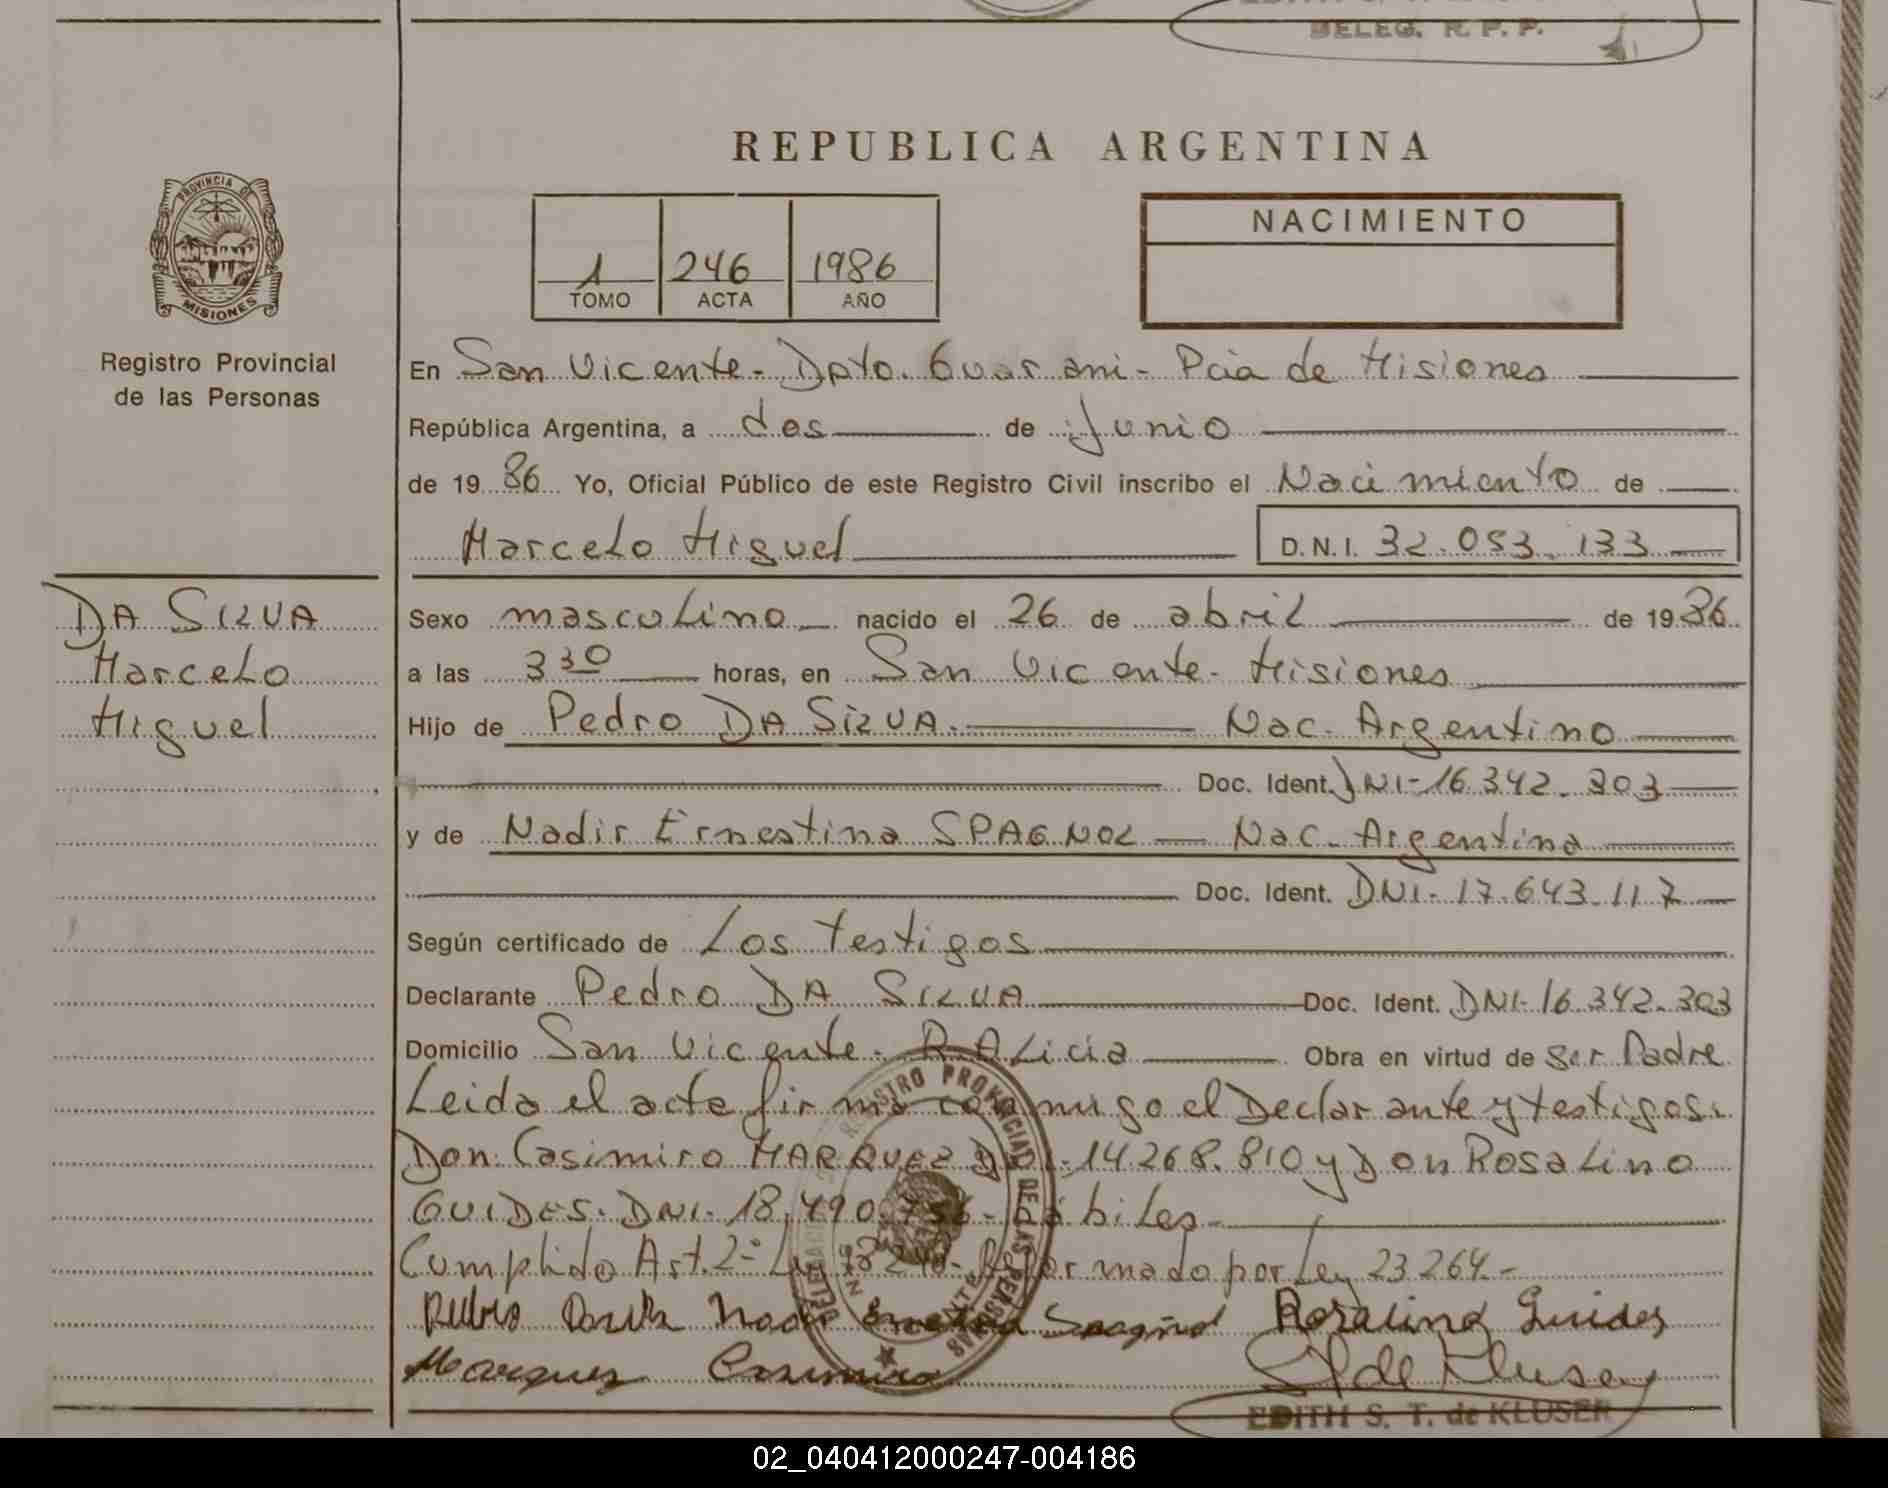 DELEG. R. P. P.
REPUBLICA ARGENTINA
PROVINCIA DE
MISIONES
Registro Provincial
de las Personas
1 246 1986
TOMO ACTA AÑO
NACIMIENTO
En San Vicente - Dpto. Guarani - Pcia de Misiones
República Argentina, a dos de Junio
de 1986 Yo, Oficial Público de este Registro Civil inscribo el Nacimiento de
Marcelo Miguel D.N.I. 32.053.133
DA SILVA
Marcelo
Miguel
Sexo masculino nacido el 26 de abril de 1986
a las 3 30 horas, en San Vicente - Misiones
Hijo de Pedro DA SILVA. Nac. Argentino
Doc. Ident. DNI-16.342.303
y de Nadir Ernestina SPAGNOL Nac. Argentina
Doc. Ident. DNI-17.643.117
Según certificado de Los testigos
Declarante Pedro DA SILVA Doc. Ident. DNI-16.342.303
Domicilio San Vicente - P. ALicia Obra en virtud de ser Padre
Leida el acta firma conmigo el Declarante y testigos:
Don: Casimiro MARQUEZ DNI-14.268.810 y Don Rosalino
GUIDES. DNI. 18.490. hábiles
Cumplido Art. 2º Ley Reformado por Ley 23264.-
Nadir Ernestina Spagnol Rosalino Guides
Marquez Casimiro
REGISTRO PROVINCIAL DE LAS PERSONAS
EDITH S. T. de KLUSER
02_040412000247-004186